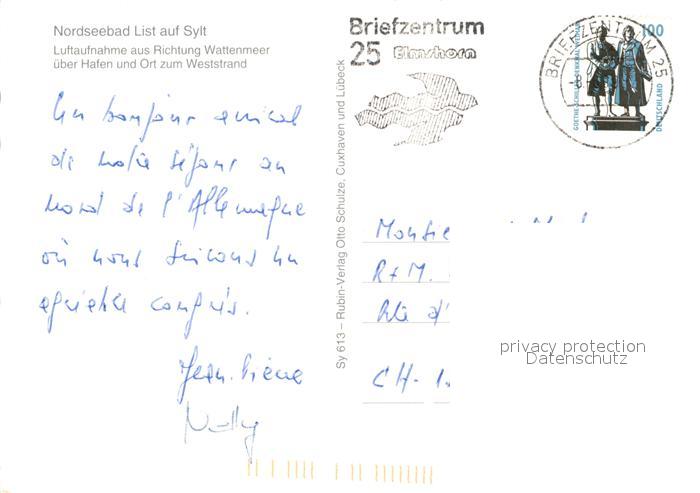 Nordseebad List auf Sylt
Luftaufnahme aus Richtung Wattenmeer
über Hafen und Ort zum Weststrand
Un bonjour amical
de notre séjour au
nord de l'Allemagne
où nous suivons un
agréable congrès.
Jean-Pierre
Sy 613 – Rubin-Verlag Otto Schulze, Cuxhaven und Lübeck
Briefzentrum
25 Elmshorn
BRIEFZENTRUM 25
100
GOETHE-SCHILLER-DENKMAL WEIMAR
DEUTSCHLAND
Monsie
R+M.
d'
CH-1.
privacy protection
Datenschutz